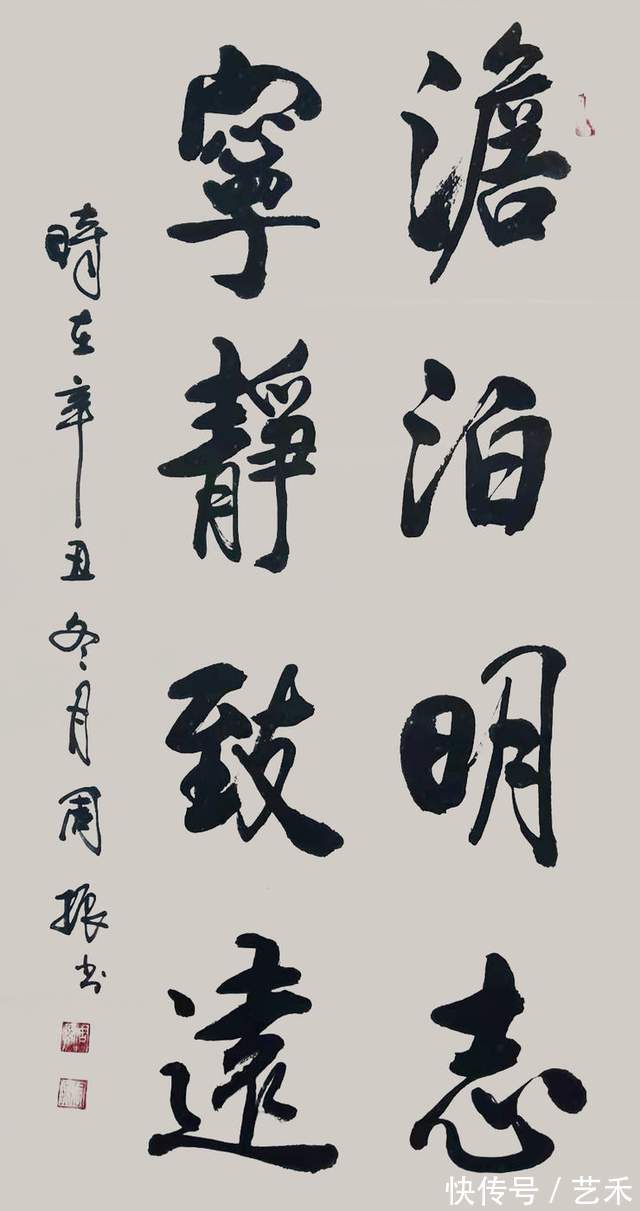 澹泊明志
寧靜致遠
時在辛丑冬月周振书
快传号／艺禾